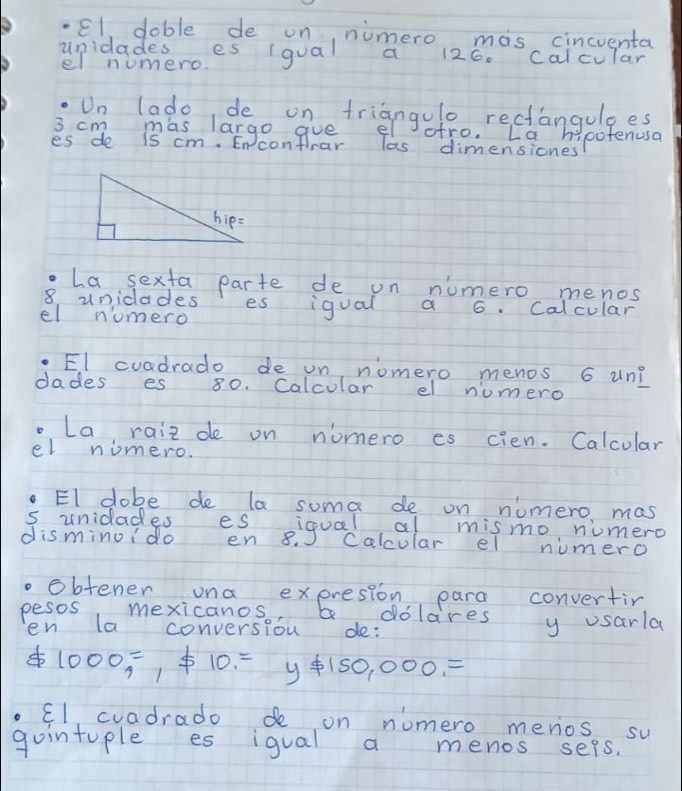 • El doble de un número más cincuenta
unidades es igual a 126. Calcular
el número.
• Un lado de un triángulo rectángulo es
3 cm más largo que el otro. La hipotenusa
es de 15 cm. Encontrar las dimensiones
hip=
• La sexta parte de un número menos
8 unidades es igual a 6. Calcular
el número
• El cuadrado de un número menos 6 uni
dades es 80. Calcular el número
• La raiz de un número es cien. Calcular
el número.
• El dobe de la suma de un número mas
5 unidades es igual al mismo número
disminuido en 8. Calcular el número
• Obtener una expresión para convertir
pesos mexicanos a dólares y usarla
en la conversión de:
$1000.=, $10.= y $150,000.=
• El cuadrado de un número menos su
quintuple es igual a menos seis.